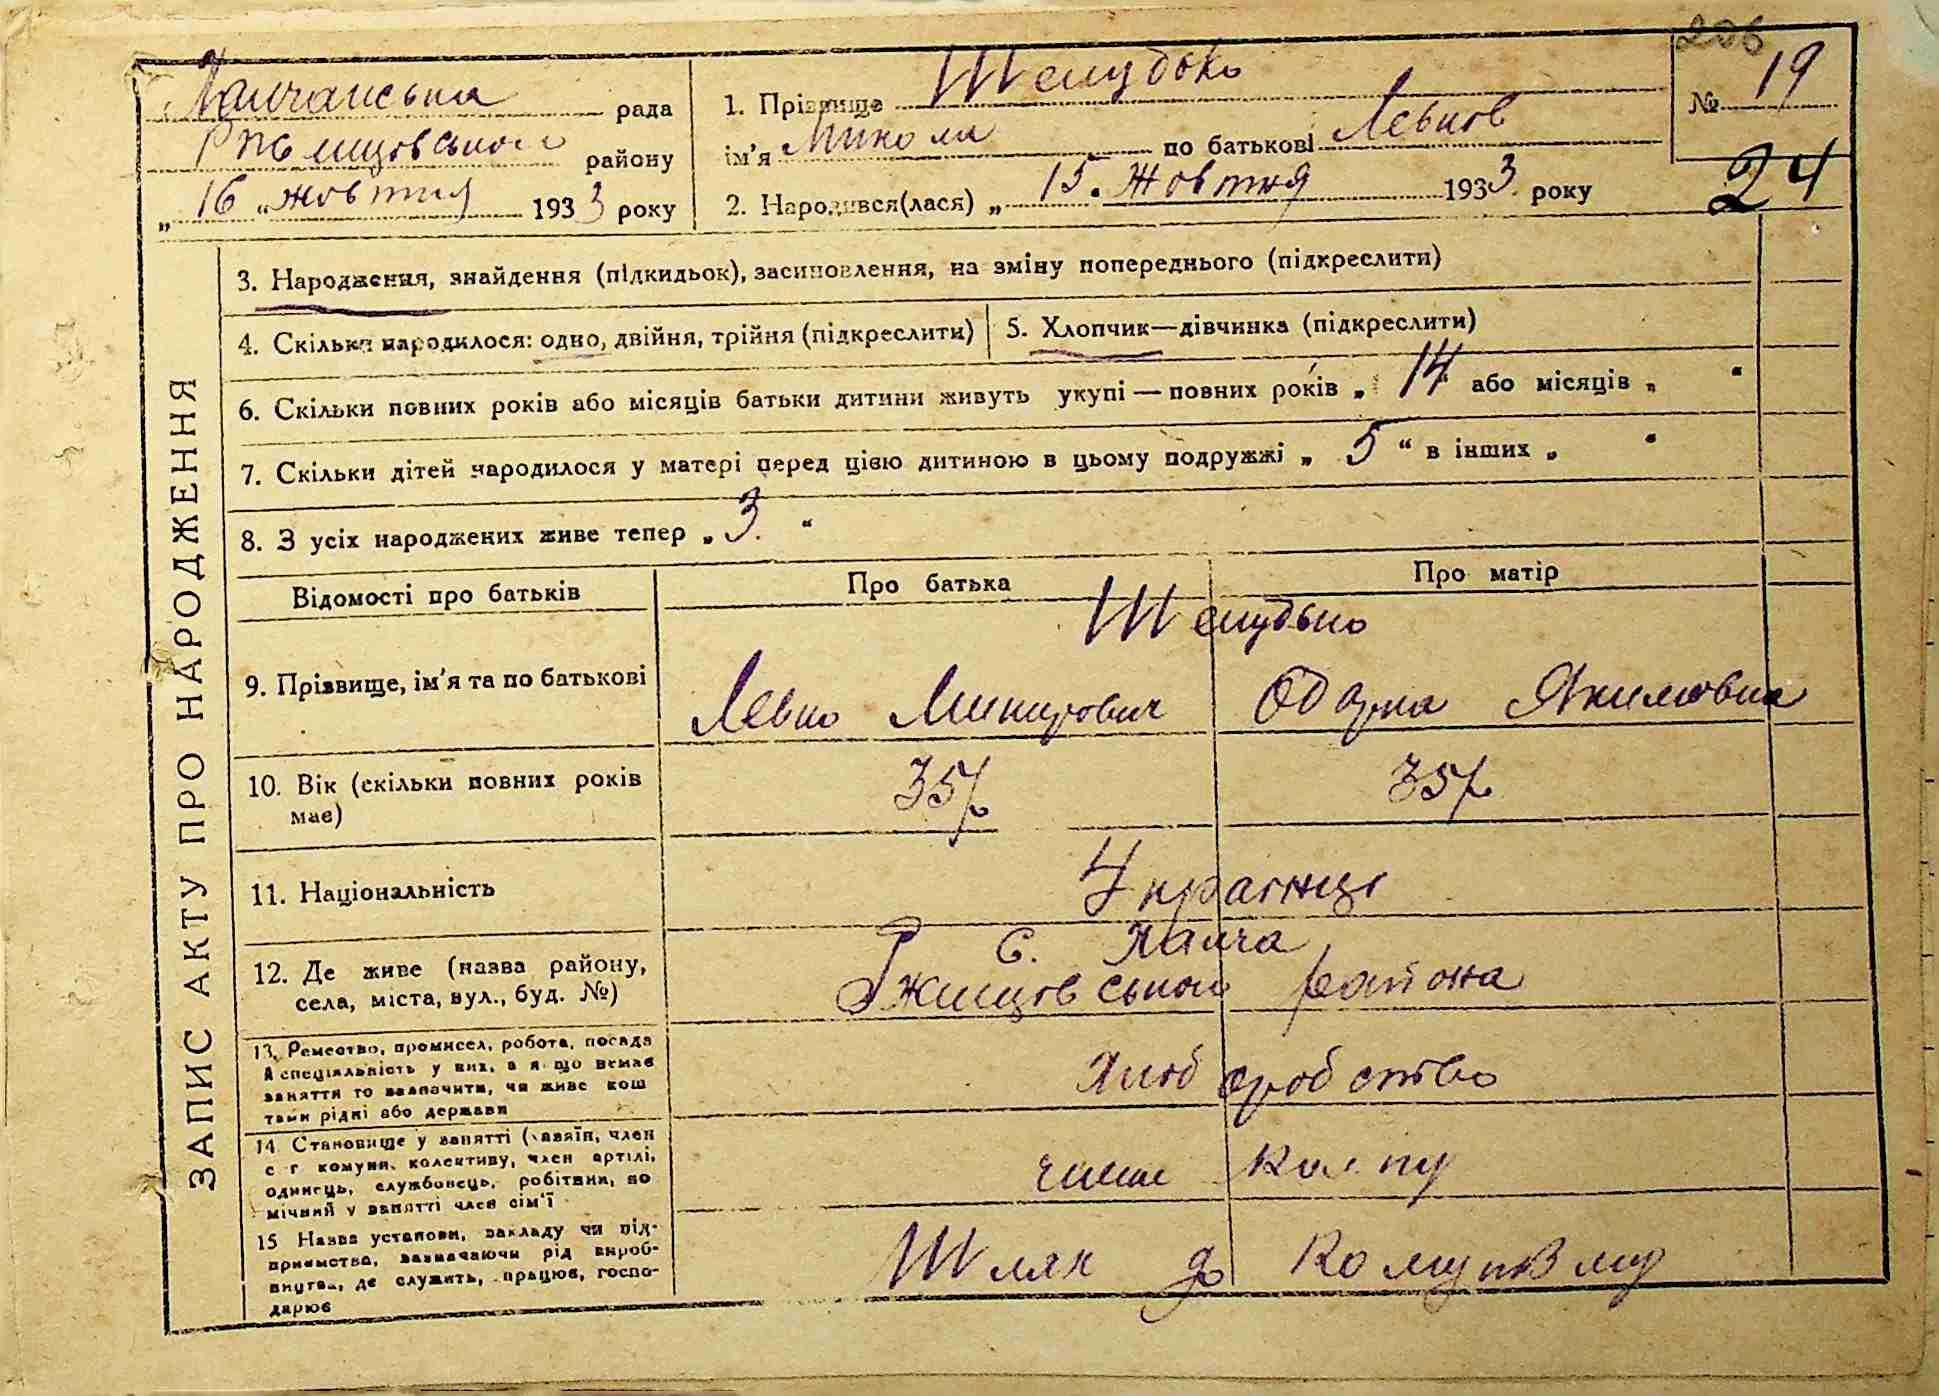 206
Панчанська рада
Ржищовського району
„ 16 “ жовтня 1933 року
1. Прізвище Шелудько
ім'я Микола по батькові Левков
2. Народився(лася) „ 15 . Жовтня 1933 року
№ 19
24
ЗАПИС АКТУ ПРО НАРОДЖЕННЯ
3. Народження, знайдення (підкидьок), засиновлення, на зміну попереднього (підкреслити)
4. Скільки народилося: одно, двійня, трійня (підкреслити)
5. Хлопчик—дівчинка (підкреслити)
6. Скільки повних років або місяців батьки дитини живуть укупі — повних років „ 14 “ або місяців „ “
7. Скільки дітей народилося у матері перед цією дитиною в цьому подружжі „ 5 “ в інших „ “
8. З усіх народжених живе тепер „ 3. “
Відомості про батьків
Про батька
Про матір
9. Прізвище, ім'я та по батькові
Шелудько
Левко
Одарка Якимовна
10. Вік (скільки повних років
має)
35р
35р
11. Національність
Українці
12. Де живе (назва району,
села, міста, вул., буд. №)
С. Панча
Ржищовського району
13. Ремество, промисел, робота, посада
й спеціальність у них, а якщо немає
заняття то зазначити, чи живе кош
тами рідні або держави
Хліборобство
14 Становище у занятті (хазяїн, член
с г комуни, колективу, член артілі,
одинець, службовець, робітник, по
мічний у занятті член сім'ї
член колгпу
15 Назва установи, закладу чи під-
приємства, зазначаючи рід вироб-
ництва, де служить, працює, госпо-
дарює
Шлях до Комунізму